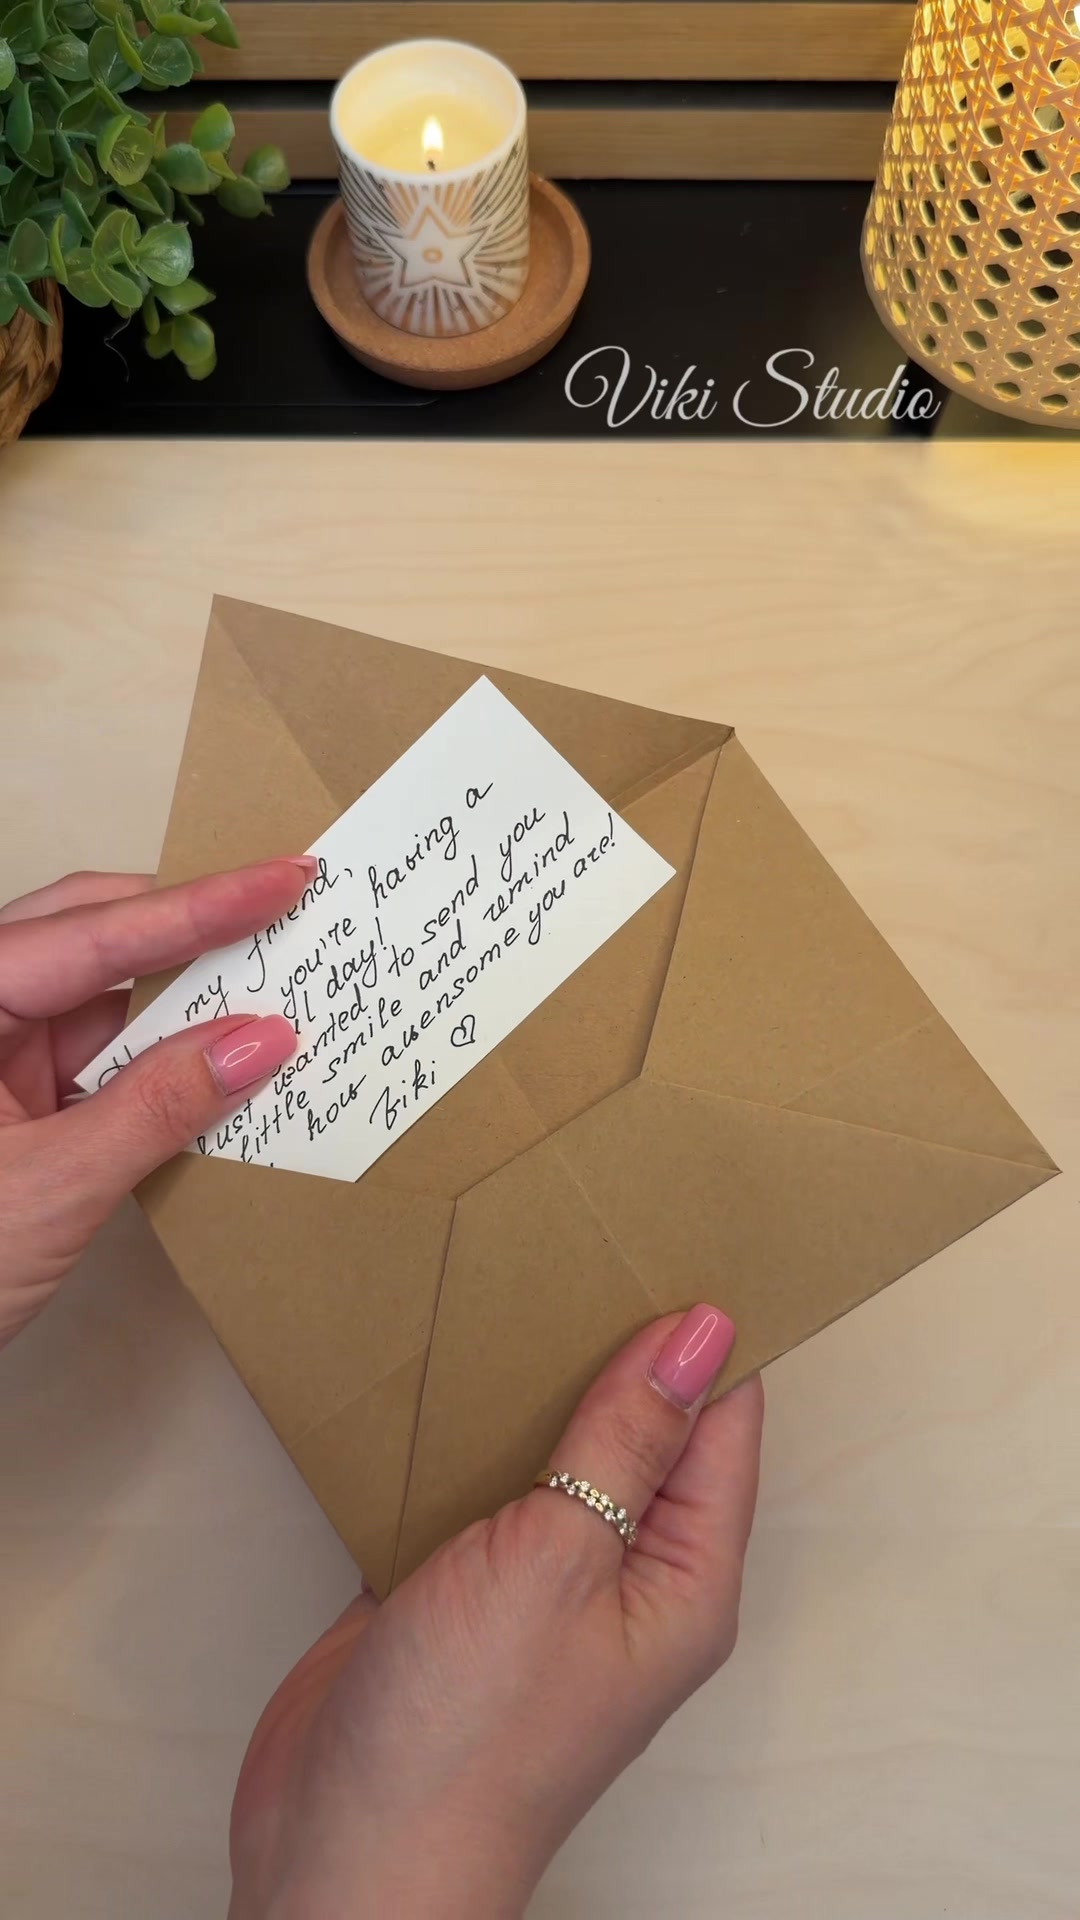 Viki Studio
my friend,
you're having a
day!
Just wanted to send you
little smile and remind
how awensome you are!
Viki